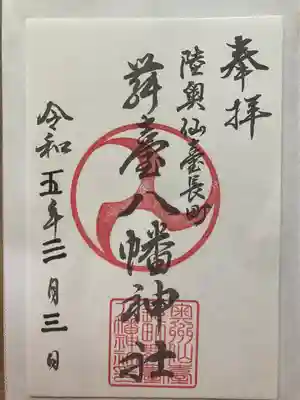 奉拝
陸奥仙臺長町
舞臺八幡神社
令和五年二月三日
奥州仙臺